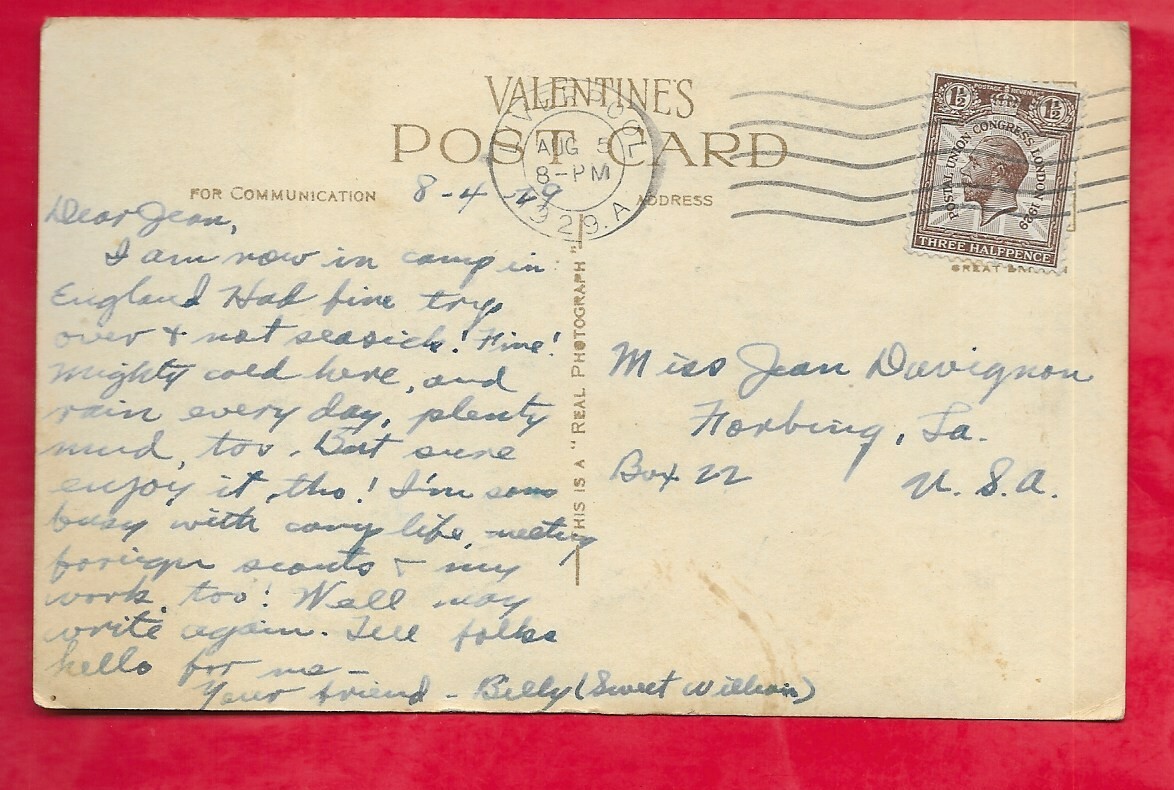 VALENTINE'S
POST CARD
FOR COMMUNICATION
8-4-29
ADDRESS
LIVERPOOL
AUG 5
8-PM
1929.A
1½ POSTAGE & REVENUE 1½
POSTAL UNION CONGRESS LONDON 1929
THREE HALFPENCE
GREAT BRITAIN
THIS IS A "REAL PHOTOGRAPH"
Dear Jean,
I am now in camp in
England Had fine trip
over & not seasick! Fine!
Mighty cold here, and
rain every day, plenty
mud, too. But sure
enjoy it, tho! I'm
busy with camp life, meeting
foriegn scouts & my
work, too! Well may
write again. Tell folks
hello for me -
Your friend - Billy (Sweet William)
Miss Jean Davignon
Forbing, La.
Box 22 U.S.A.